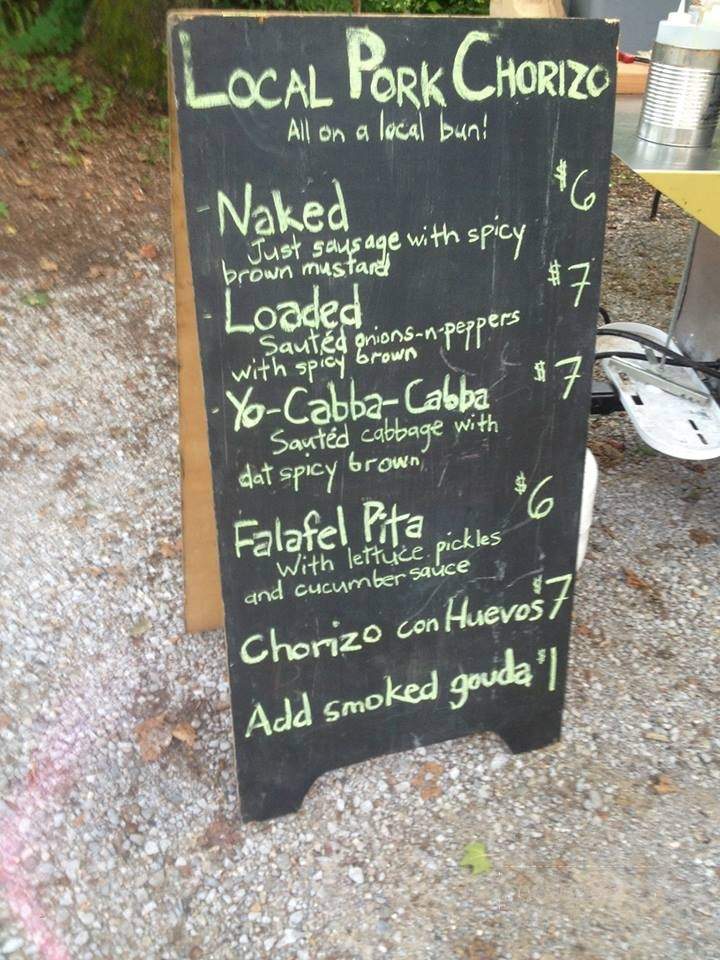 LOCAL PORK CHORIZO
All on a local bun!
- Naked $6
Just sausage with spicy
brown mustard
- Loaded $7
Sautéd onions-n-peppers
with spicy brown
- Yo-Cabba-Cabba $7
Sautéd cabbage with
dat spicy brown,
Falafel Pita $6
With lettuce pickles
and cucumber sauce
Chorizo con Huevos $7
Add smoked gouda $1